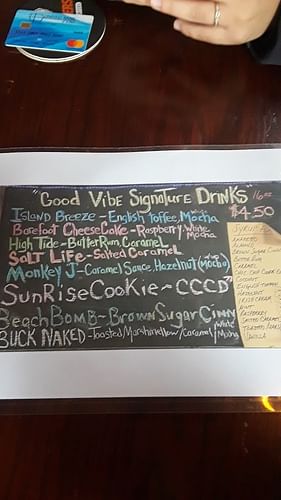 "Good Vibe Signature Drinks" 16oz
$4.50
Island Breeze - English Toffee, Mocha
Barefoot CheeseCake - Raspberry, White Mocha
High Tide - ButterRum, Caramel
Salt Life - Salted Caramel
Monkey J - Caramel Sauce, Hazelnut (Mocha)
SunRise Cookie - CCCD
Beach Bomb - Brown Sugar Cinn
BUCK NAKED - Toasted Marshmallow/Caramel/White Mocha
Syrups
Amaretto
Almond
Brown Sugar Cinn
Butter Rum
Caramel
Coconut
English Toffee
Hazelnut
Irish Cream
Mint
Raspberry
Salted Caramel
Toasted Marsh
Vanilla